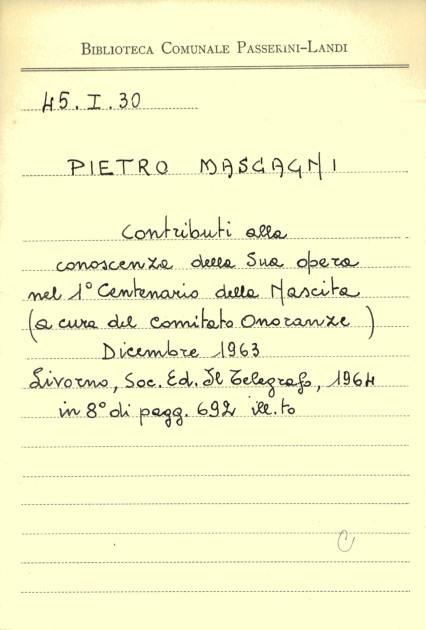 BIBLIOTECA COMUNALE PASSERINI-LANDI
45.I.30
PIETRO MASCAGNI
Contributi alla
conoscenza della Sua opera
nel 1° Centenario della Nascita
(a cura del Comitato Onoranze )
Dicembre 1963
Livorno, Soc. Ed. Il Telegrafo, 1964
in 8° di pagg. 692 ill.to
C